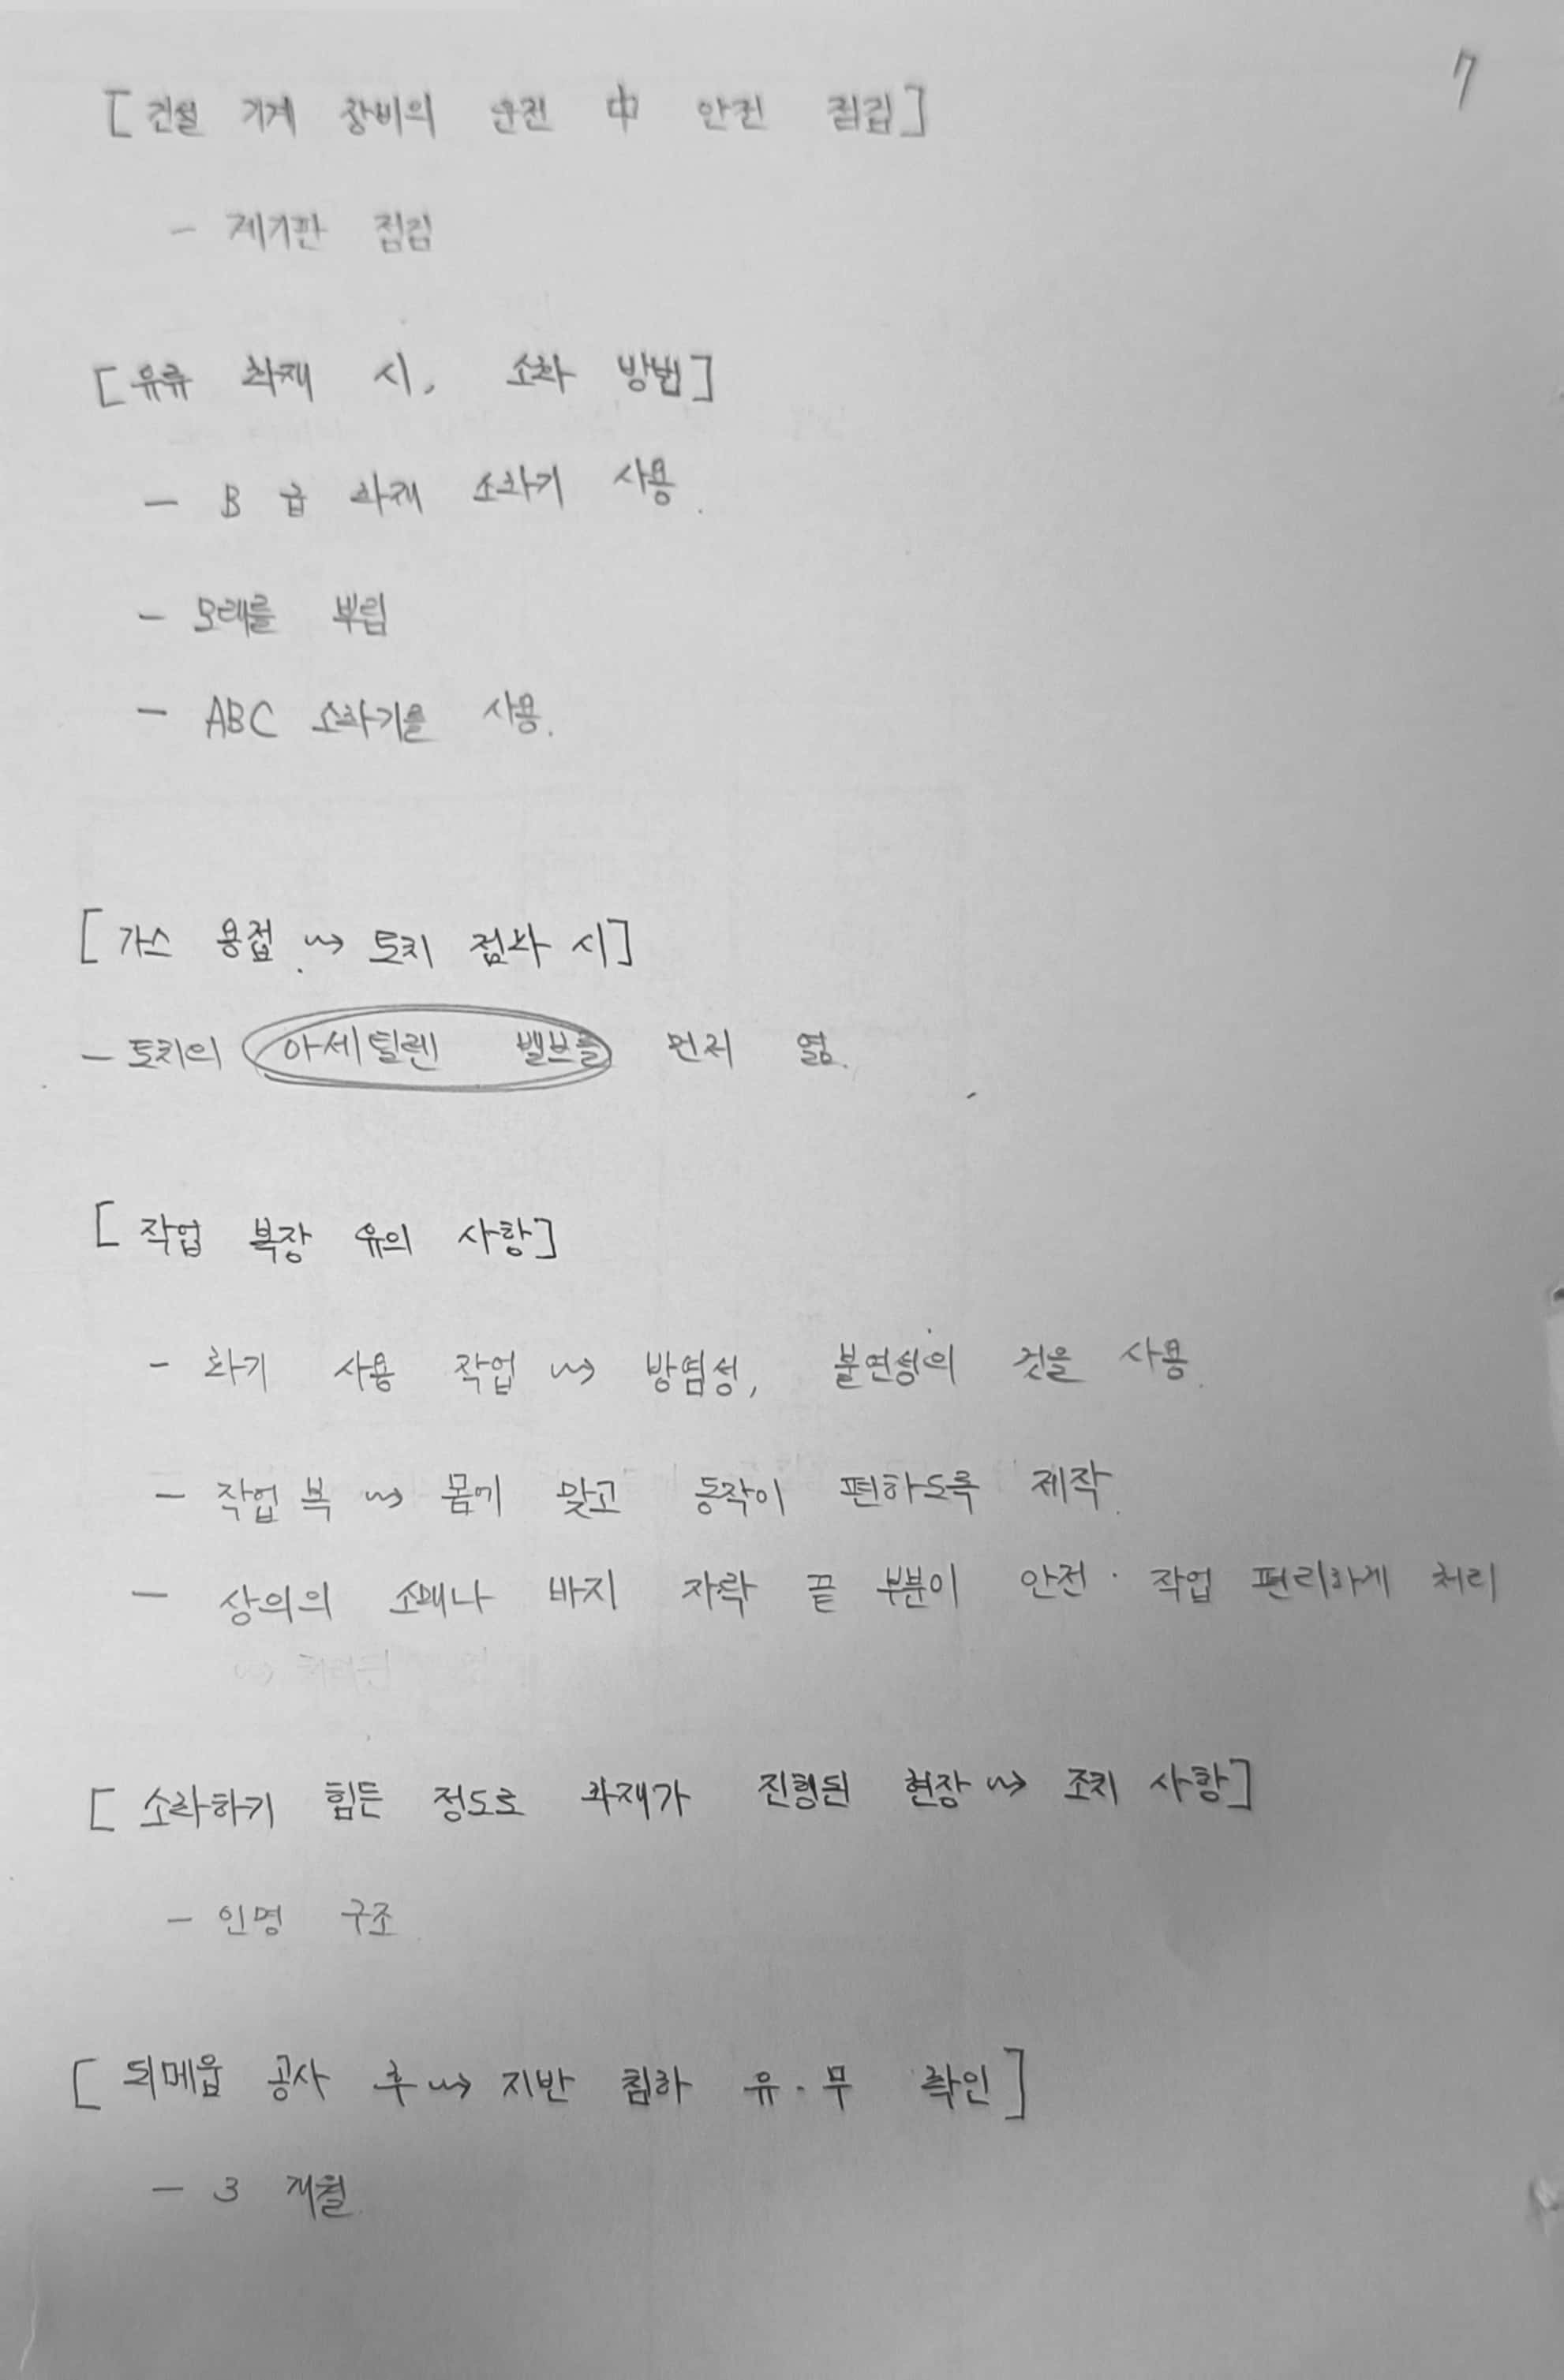 7
[건설 기계 장비의 운전 中 안전 점검]
- 계기판 점검
[유류 화재 시, 소화 방법]
- B 급 화재 소화기 사용.
- 모래를 뿌림
- ABC 소화기를 사용.
[가스 용접 ⇝ 토치 점화 시]
- 토치의 아세틸렌 밸브를 먼저 엶.
[작업 복장 유의 사항]
- 화기 사용 작업 ⇝ 방염성, 불연성의 것을 사용.
- 작업 복 ⇝ 몸에 맞고 동작이 편하도록 제작.
- 상의의 소매나 바지 자락 끝 부분이 안전 · 작업 편리하게 처리
[소화하기 힘든 정도로 화재가 진행된 현장 ⇝ 조치 사항]
- 인명 구조.
[되메움 공사 후 ⇝ 지반 침하 유 · 무 확인]
- 3 개월.